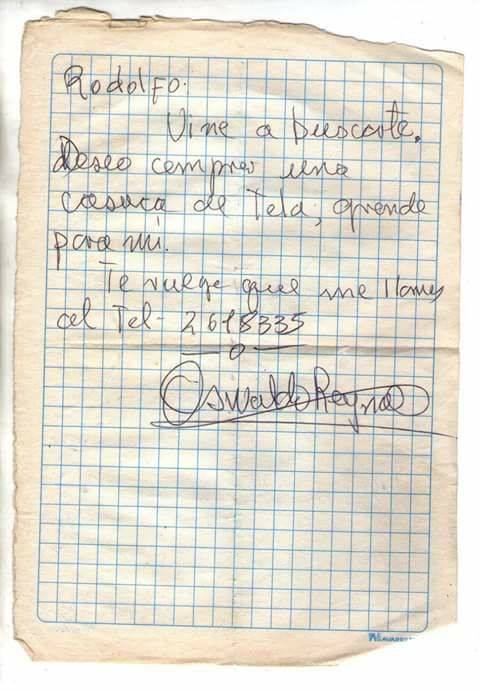 Rodolfo:
Vine a buscarte.
Deseo comprar una
casaca de tela, grande
para mí.
Te ruego que me llames
al Tel- 2618335
Oswaldo Reynoso